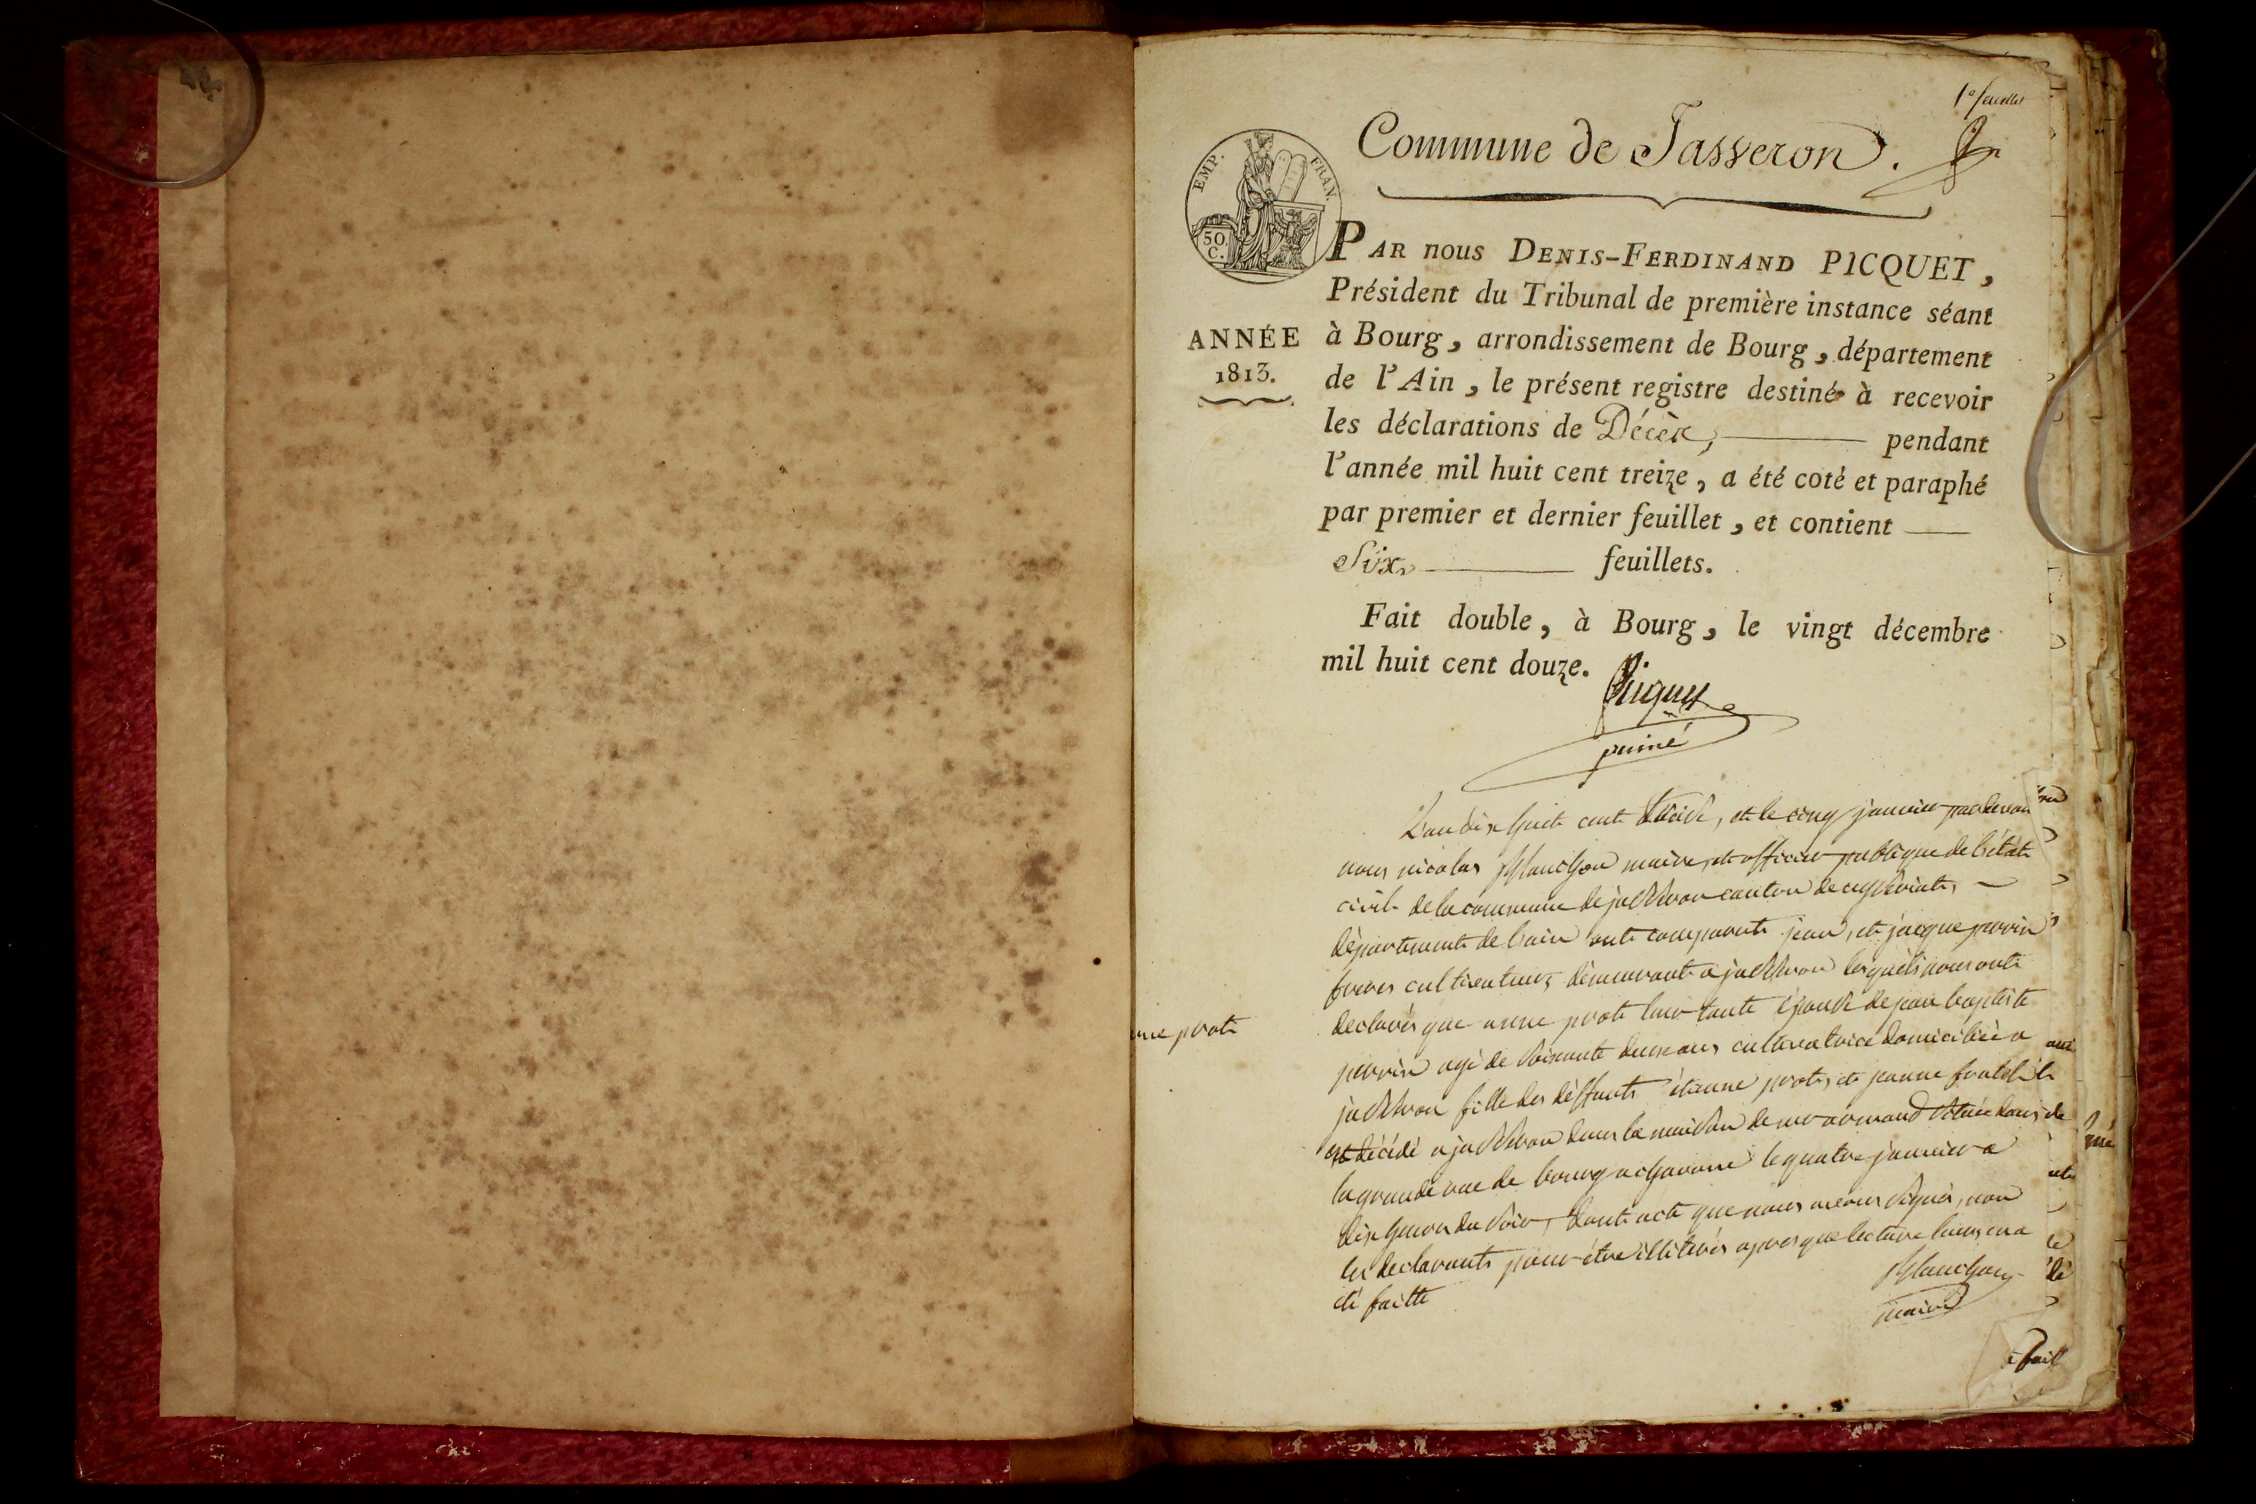 1er feuillet
Commune de Jasseron.
EMP. FRAN.
50
C.
PAR nous DENIS-FERDINAND PICQUET,
Président du Tribunal de première instance séant
ANNÉE
1813.
à Bourg, arrondissement de Bourg, département
de l'Ain, le présent registre destiné à recevoir
les déclarations de Décès, pendant
l'année mil huit cent treize, a été coté et paraphé
par premier et dernier feuillet, et contient
Six feuillets.
Fait double, à Bourg, le vingt décembre
mil huit cent douze.
Picquet
L'an dix huit cent treize, et le cinq janvier pardevan
nous nicolas planchon maire, et officier publique de l'état
civil de la commune de jasseron canton de ceyseriat,
département de l'ain ont comparut jean, et jacque perrin
freres cultivateurs demeurant a jasseron lesquels nous ont
declarés que anne prost leur tante épouse de jean baptiste
perrin agé de soixante douze ans cultivatrice domiciliée a
jasseron fille des deffunts étienne prost, et jeanne
est décédé a jasseron dans la maison de mr armand située dans
la grande rue de bourg a chavanne le quatre janvier a
dix heures du soir, dont acte que nous avons signés, non
les declarants pour être illiterés apres que lecture leurs en a
été faitte
planchon
maire
ne prost